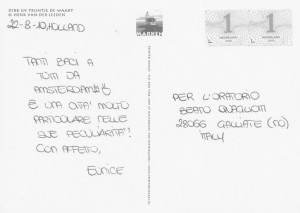 DIRK EN TRIJNTJE DE WAART
© HENK VAN DER LEEDEN
22-8-10, HOLLAND
MARKEN
1
1
NEDERLAND
NEDERLAND
TANTI BACI A
TUTTI DA
AMSTERDAM!!
È UNA CITTA' MOLTO
PARTICOLARE NELLE
SUE PECULIARITA'!
CON AFFETTO,
EUNICE
PER L'ORATORIO
BEATO QUAGLIOTTI
28066 GALLIATE (NO)
ITALY